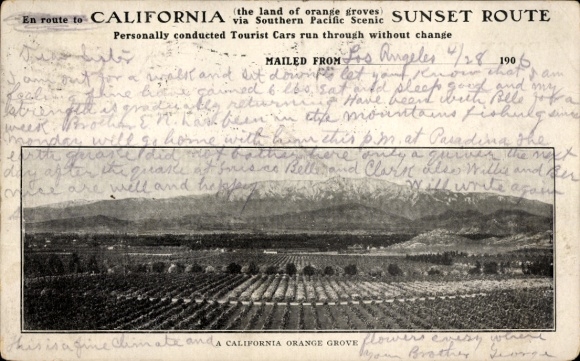 En route to CALIFORNIA (the land of orange groves) via Southern Pacific Scenic SUNSET ROUTE
Personally conducted Tourist Cars run through without change
MAILED FROM Los Angeles 4/28 1906
Dear Sister
I am out for a walk and sit down to let you know that I am
feeling fine have gained 6 lbs. Eat and sleep good and my
strength is gradually returning Have been with Belle for a
week Brother E N has been in the mountains fishing since
monday will go home with him this p.m. at Pasadina The
earth quake did not bother here only a quiver the next
day after the quake at Frisco Belle and Clark also Willis and
are well and happy Will write again
A CALIFORNIA ORANGE GROVE
This is a fine Climate and flowers every where
Your Brother George